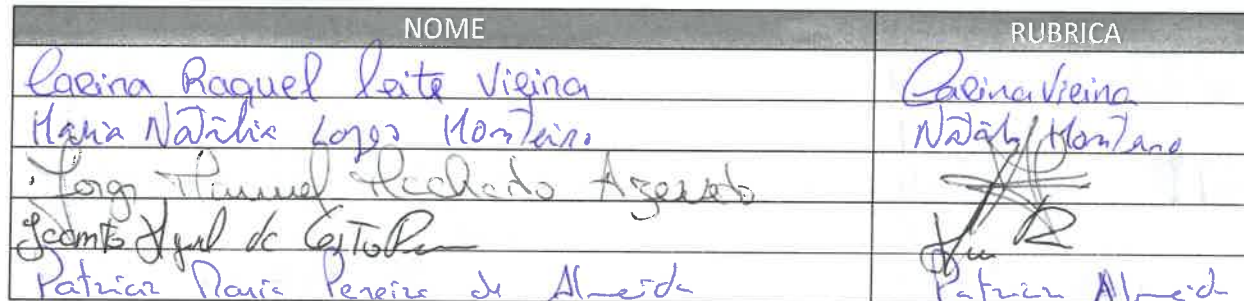 NOME RUBRICA
Carina Raquel Leite Vieira Carina Vieira
Maria Natália Lopes Monteiro Natália Monteiro
Jorge Manuel Machado Azevedo
Jacinto Miguel da Costa
Patrícia Maria Pereira de Almeida Patrícia Almeida